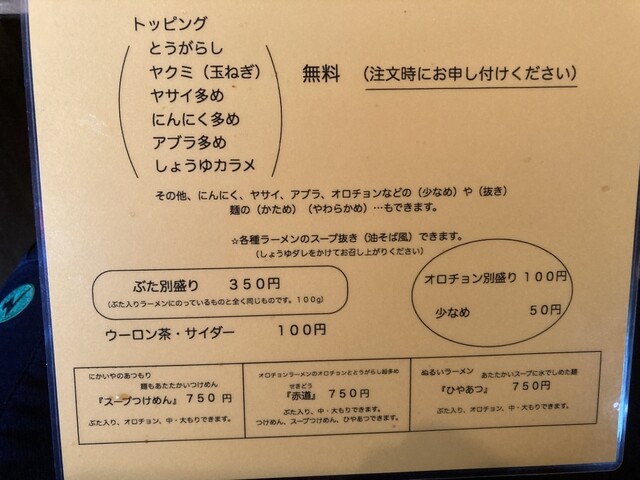 トッピング
とうがらし
ヤクミ（玉ねぎ）
ヤサイ多め
にんにく多め
アブラ多め
しょうゆカラメ
無料 （注文時にお申し付けください）
その他、にんにく、ヤサイ、アブラ、オロチョンなどの（少なめ）や（抜き）
麺の（かため）（やわらかめ）…もできます。
☆各種ラーメンのスープ抜き（油そば風）できます。
（しょうゆダレをかけてお召し上がりください）
ぶた別盛り ３５０円
（ぶた入りラーメンにのっているものと全く同じものです。100g）
オロチョン別盛り １００円
少なめ ５０円
ウーロン茶・サイダー １００円
にかいやのあつもり
麺もあたたかいつけめん
『スープつけめん』７５０円
ぶた入り、オロチョン、中・大もりできます。
オロチョンラーメンのオロチョンととうがらし超多め
せきどう
『赤道』７５０円
ぶた入り、中・大もりできます。
つけめん、スープつけめん、ひやあつできます。
ぬるいラーメン
あたたかいスープに水でしめた麺
『ひやあつ』 ７５０円
ぶた入り、オロチョン、中・大もりできます。